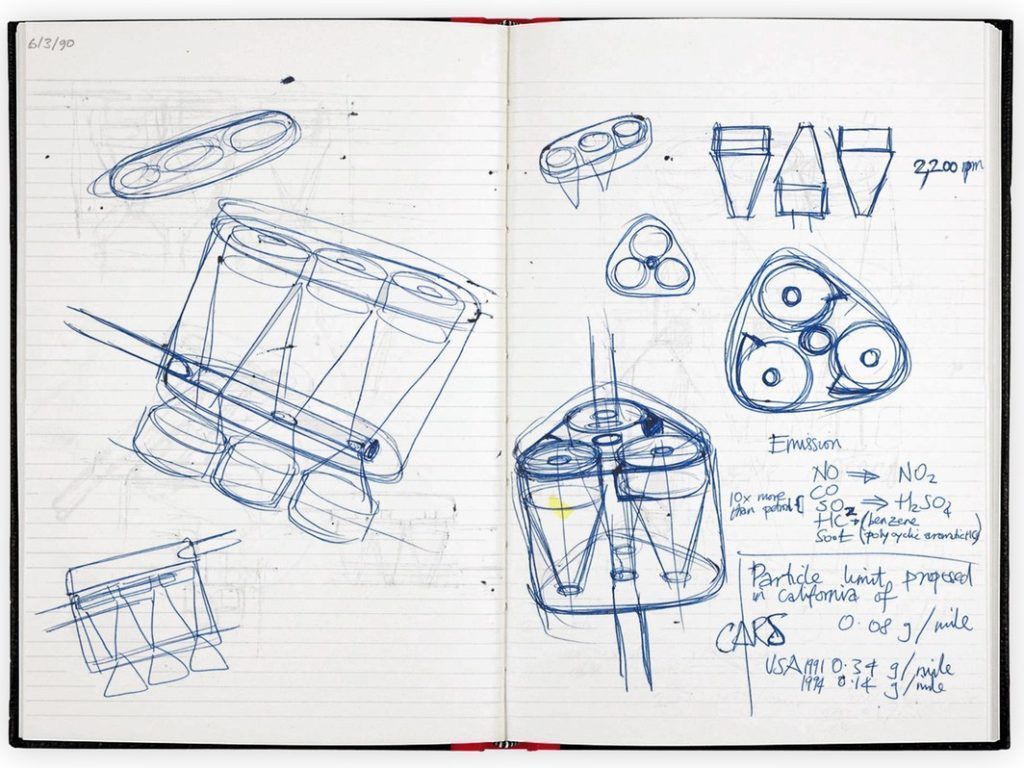 6/3/90
2,200 rpm
Emission
NO ⇒ NO2
CO
10x more than petrol {
SO2 ⇒ H2SO4
HC + (benzene
Soot (polycyclic aromatics)
Particle limit proposed
in California of
0.08 g/mile
CARS
USA 1991 0.34 g/mile
1994 0.14 g/mile